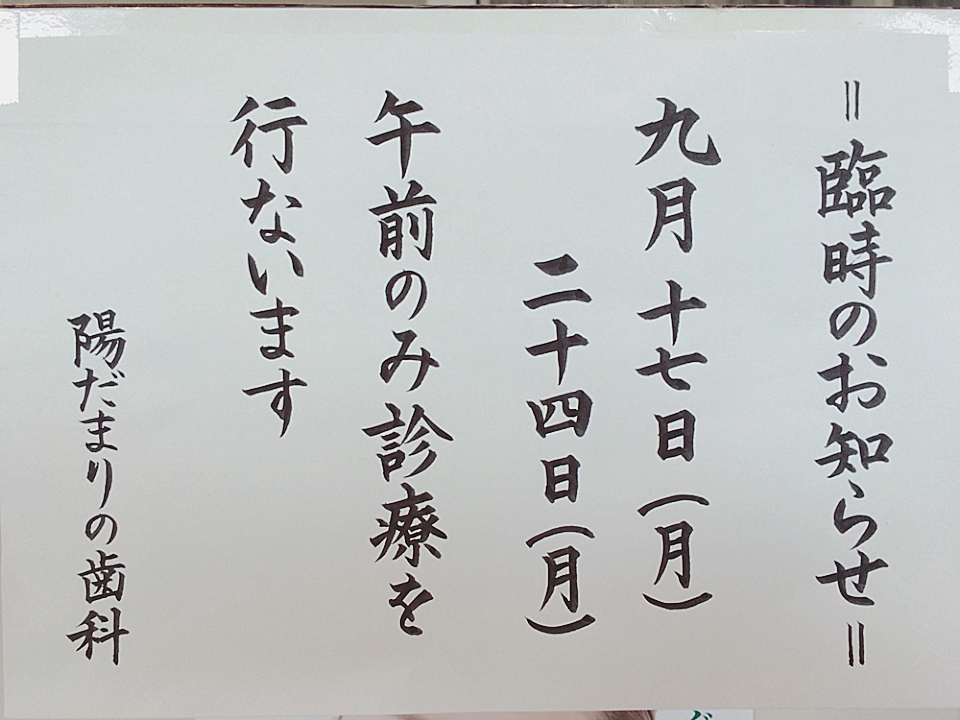 ＝臨時のお知らせ＝
九月十七日（月）
二十四日（月）
午前のみ診療を
行ないます
陽だまりの歯科